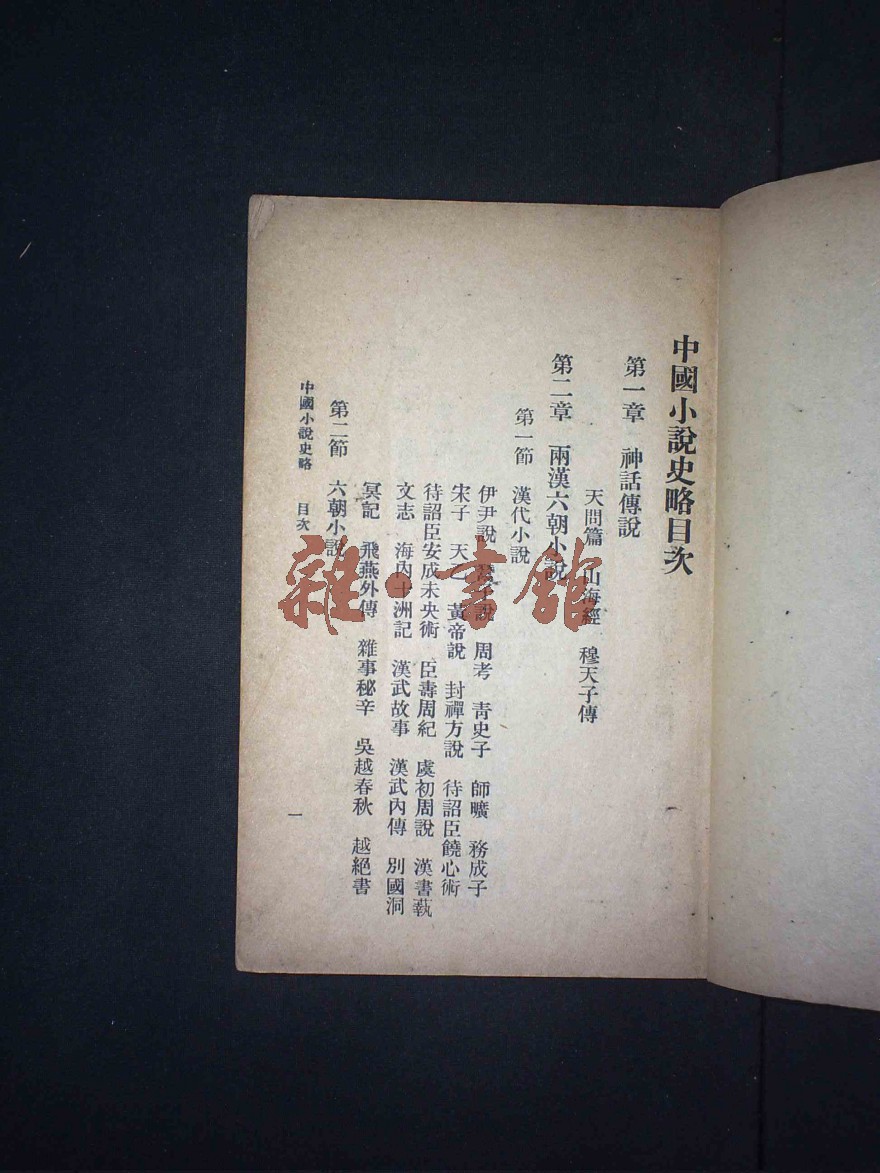 中國小說史略目次
第一章　神話傳說
天問篇　山海經　穆天子傳
第二章　兩漢六朝小說
第一節　漢代小說
伊尹說　鬻子說　周考　青史子　師曠　務成子
宋子　天乙　黃帝說　封禪方說　待詔臣饒心術
待詔臣安成未央術　臣壽周紀　虞初周說　漢書藝
文志　海內十洲記　漢武故事　漢武內傳　別國洞
冥記　飛燕外傳　雜事秘辛　吳越春秋　越絕書
第二節　六朝小說
中國小說史略　目次
一
雜·書館